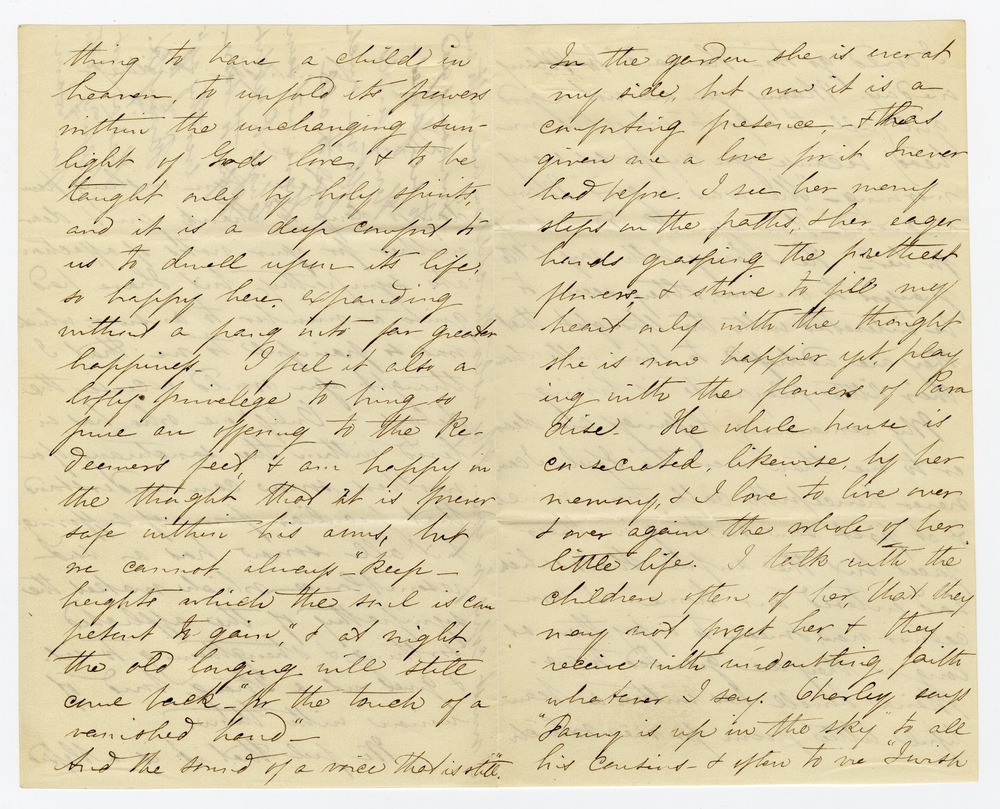 thing to have a child in
heaven, to unfold its powers
within the unchanging sun-
light of Gods love, & to be
taught only by holy spirits,
and it is a deep comfort to
us to dwell upon its life,
so happy here, expanding
without a pang into far greater
happiness- I feel it also a
lofty privelege to bring so
pure an offering to the Re-
deemer's feet, & am happy in
the thought that it is forever
safe within his arms, but
we cannot always "keep-
heights which the soul is com
petent to gain," & at night
the old longing will still
come back-"for the touch of a
vanished hand"-
And the sound of a voice that is still".
In the garden she is ever at
my side, but now it is a
comforting presence,-& thas
given me a love for it I never
had before. I see her merry
steps on the paths, & her eager
hands grasping the prettiest
flowers, & strive to fill my
heart only with the thought
she is now happier yet, play
ing with the flowers of Para
dise- The whole house is
consecrated, likewise, by her
memory, & I love to live over
& over again the whole of her
little life. I talk with the
children often of her, that they
may not forget her & they
receive with undoubting faith
whatever I say. Charley says
"Fanny is up in the sky" to all
his cousins- & often to me "I wish